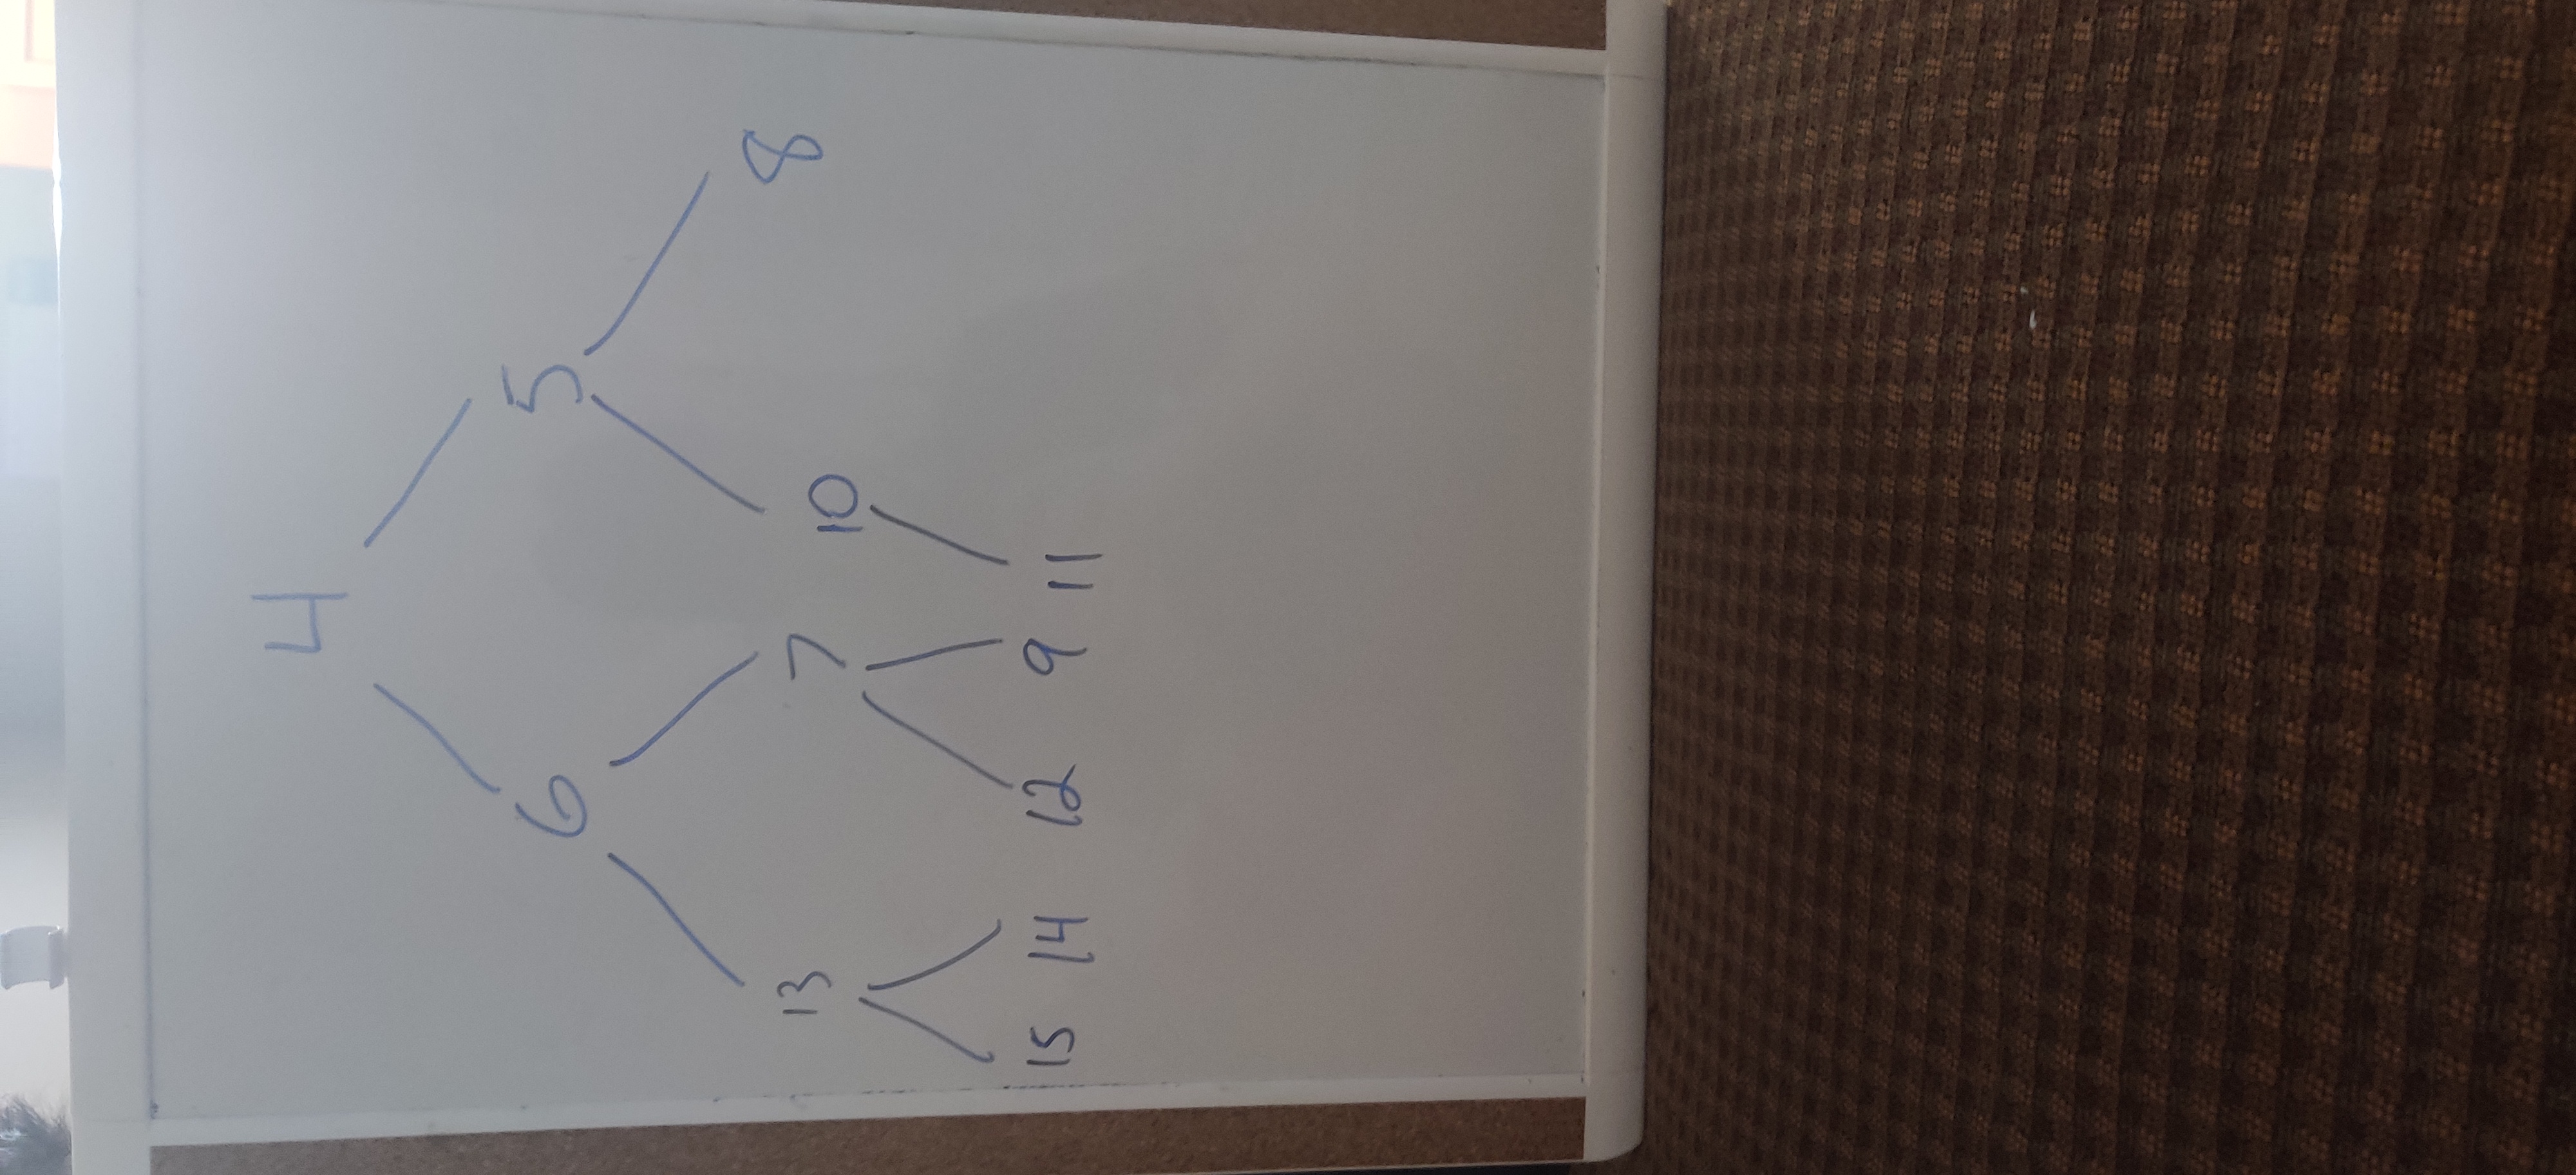 4
6 5
13 7 10 8
15 14 12 9 11